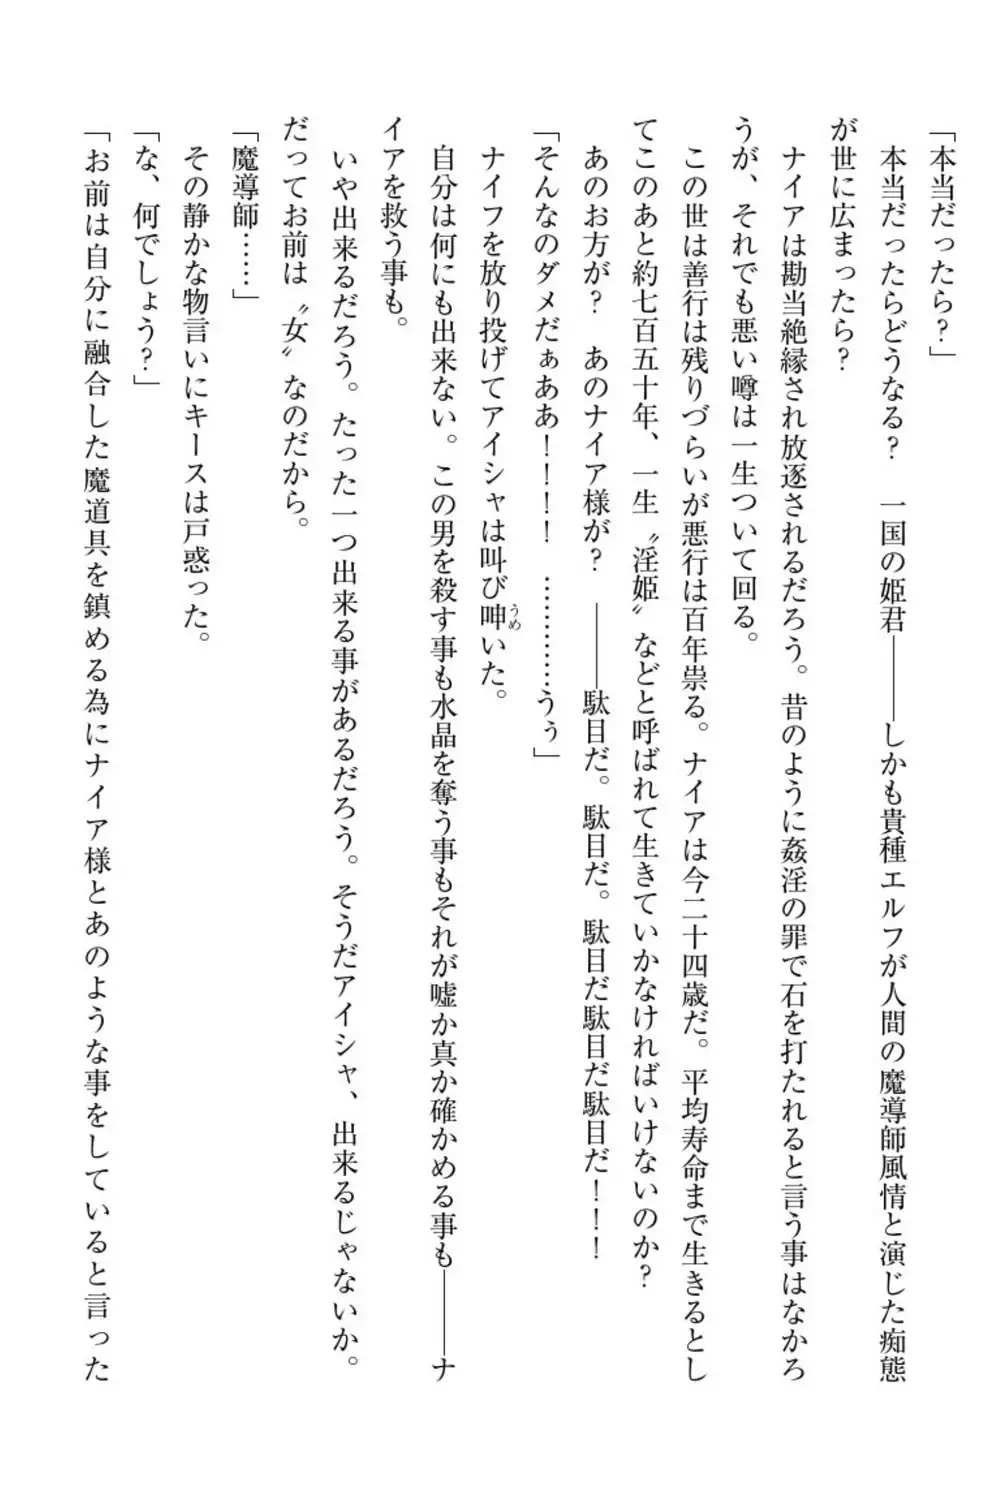 「本当だったら？」
　本当だったらどうなる？　一国の姫君――しかも貴種エルフが人間の魔導師風情と演じた痴態
が世に広まったら？
　ナイアは勘当絶縁され放逐されるだろう。昔のように姦淫の罪で石を打たれると言う事はなかろ
うが、それでも悪い噂は一生ついて回る。
　この世は善行は残りづらいが悪行は百年祟る。ナイアは今二十四歳だ。平均寿命まで生きるとし
てこのあと約七百五十年、一生〝淫姫〟などと呼ばれて生きていかなければいけないのか？
　あのお方が？　あのナイア様が？　――駄目だ。駄目だ。駄目だ駄目だ駄目だ！！！
「そんなのダメだぁああ！！！！　…………うぅ」
　ナイフを放り投げてアイシャは叫び呻うめいた。
　自分は何にも出来ない。この男を殺す事も水晶を奪う事もそれが嘘か真か確かめる事も――ナ
イアを救う事も。
　いや出来るだろう。たった一つ出来る事があるだろう。そうだアイシャ、出来るじゃないか。
だってお前は〝女〟なのだから。
「魔導師……」
　その静かな物言いにキースは戸惑った。
「な、何でしょう？」
「お前は自分に融合した魔道具を鎮める為にナイア様とあのような事をしていると言った